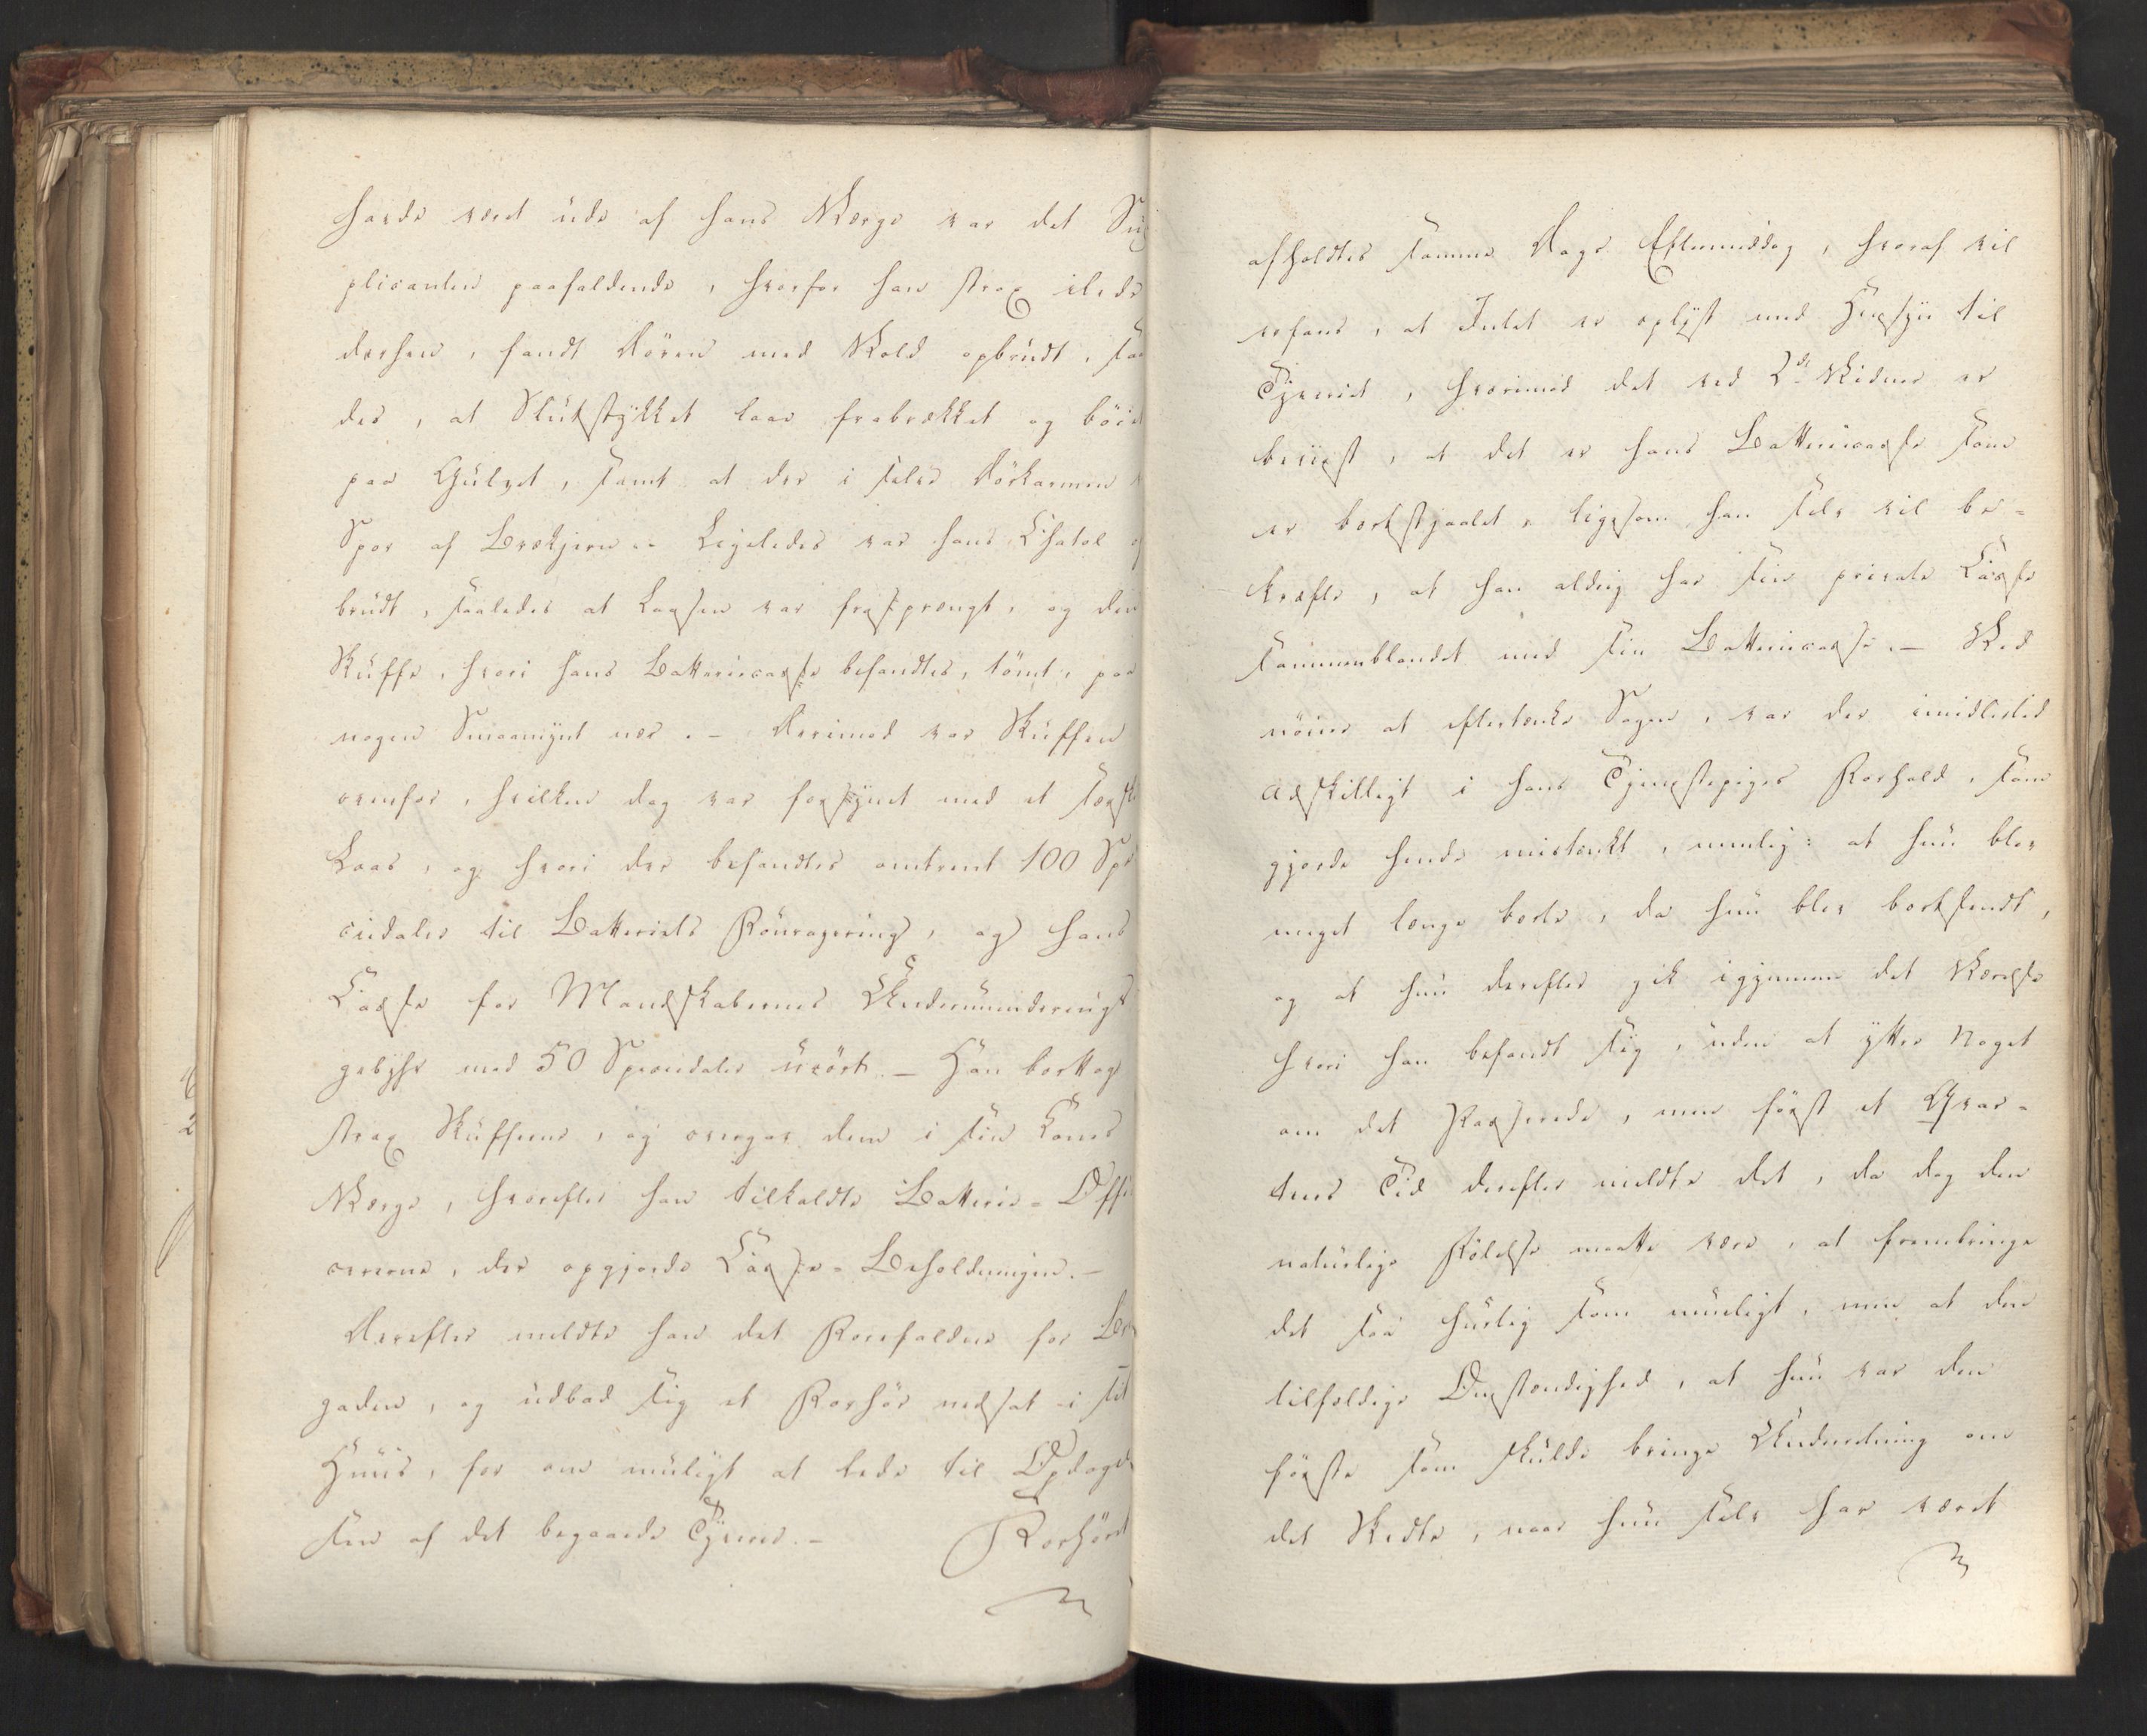 havde været ude af hans Værge var det Sup
plicanten paafaldende, hvorfor han strax ilede
derhen, fandt Dören med Vold opbrudt, saa
des, at Slutstykket laae frabrækket og böiet
paa Gulvet, samt at der i selve Dörkarmen
Spor af Brækjern.- Ligeledes var hans Chatol op
brudt, saaledes at Laasen var frasprængt, og den
Skuffe, hvori hans Battericasse befandtes, tömt, paa
nogen Smaamynt nær.- Derimod var Skuffen
ovenfor, hvilken dog var forsynet med et særskilt
Laas, og hvori der befandtes omtrent 100 Spe
ciedaler til Batteriets Fouragering, og hans
Casse for Mandskabernes Undermunderings
gebyhr med 50 Speciedaler urört.- Han borttog
strax Skufferne, og overgav dem i sin Kones
Værge, hvorefter han tilkaldte Batterie-Offi
cererne, der opgjorde Casse-Beholdningen.-
Derefter meldte han det Forefaldne for Bri
gaden, og udbad sig et Forhör nedsat i sit
Huus, for om muligt at lede til Opdagel
sen af det begaaede Tyverie.- Forhöret
afholdtes samme Dags Eftermiddag, hvoraf vil
erfares, at Intet er oplyst med Hensyn til
Tyveriet, hvorimod det ved 2de Vidner er
beviist, at det er hans Battericasse som
er bortstjaalet, ligesom han selv vil be-
kræfte, at han aldrig har sin private Casse
sammenblandet med sin Battericasse.- Ved
nöiere at eftertænke Sagen, var der imidlertid
adskilligt i hans Tjenestepiges Forhold, som
gjorde hende mistænkt, nemlig: at hun blev
meget længe borte, da hun blev bortsendt,
og at hun derefter gik igjennem det Værelse
hvori han befandt sig, uden at yttre Noget
om det Passerede, men först et Qvar-
teers Tid derefter meldte det, da dog den
naturlige Fölelse maatte være, at frembringe
det saa hurtig som muligt, men at den
tilfældige Omstændighed, at hun var den
förste som skulde bringe Underretning om
det Skedte, naar hun selv har været